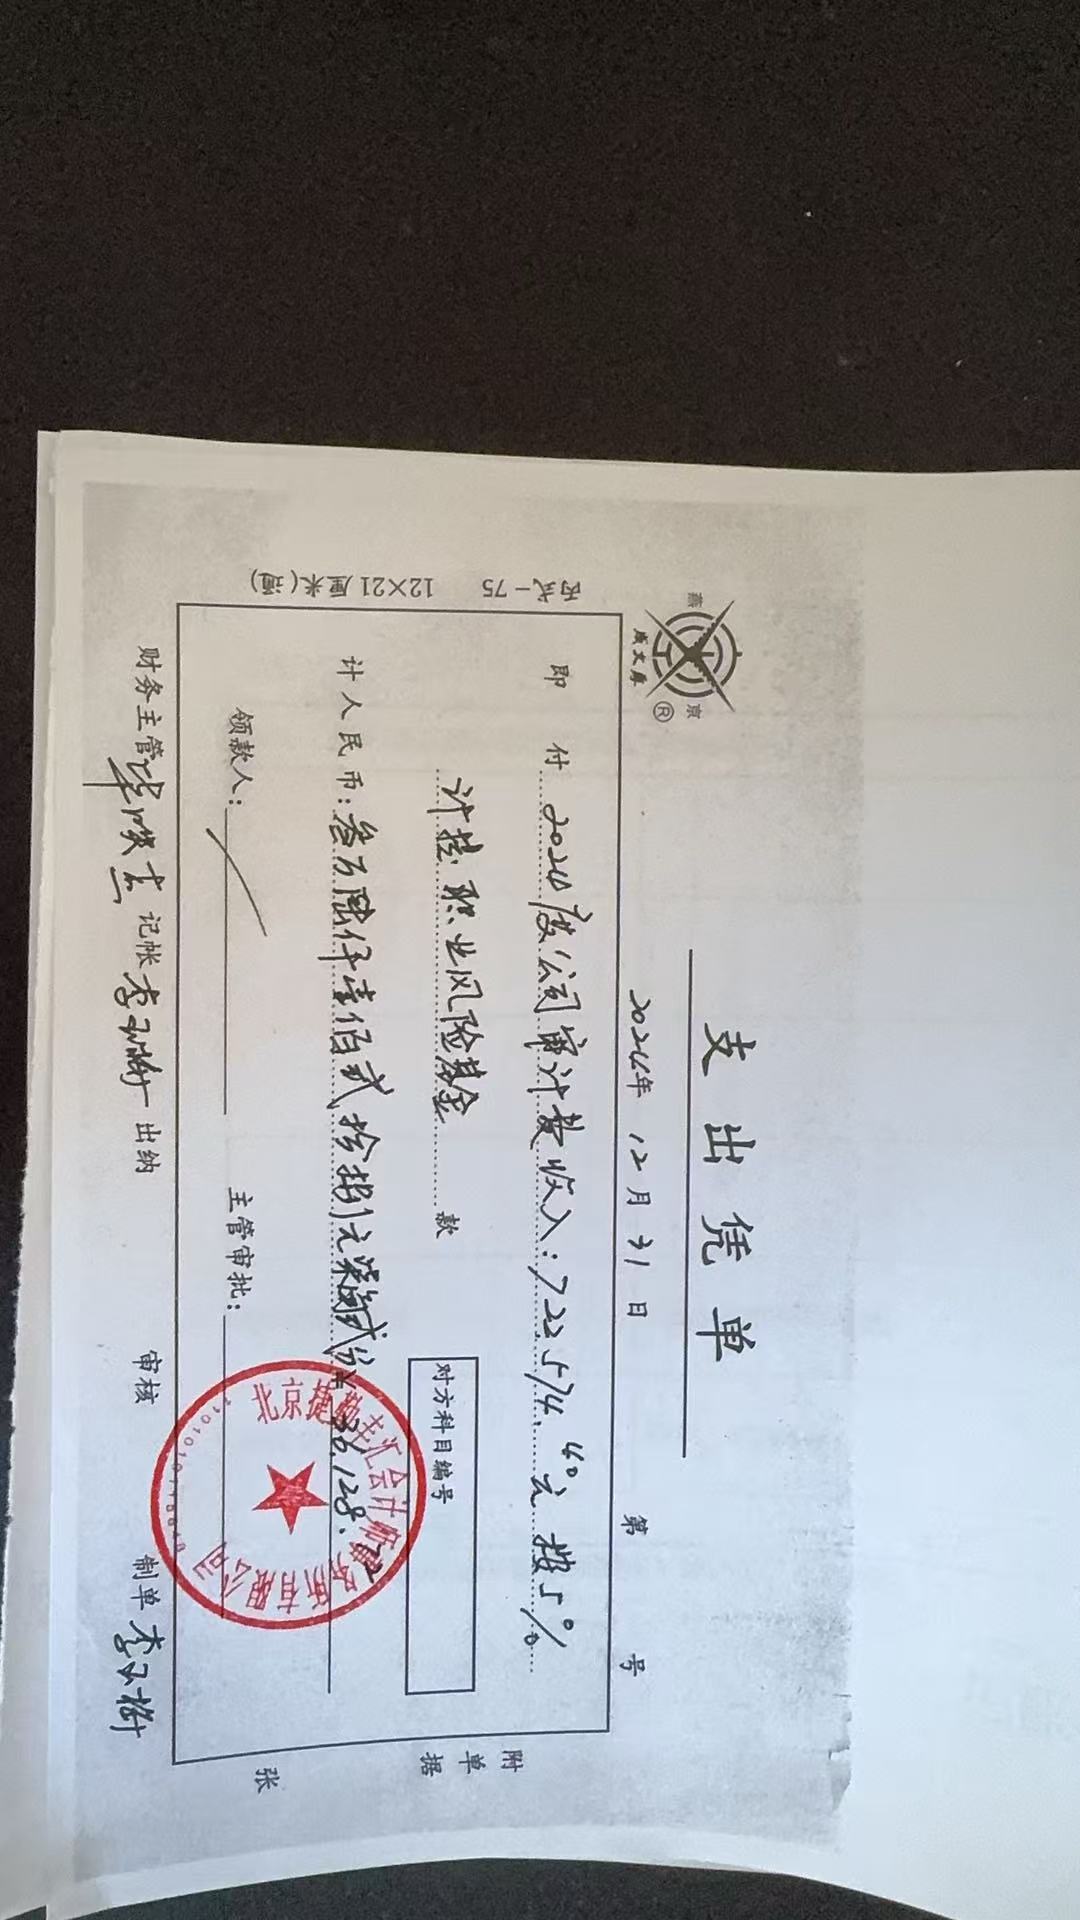 支出凭单
2024年 12月 31日 第 号
燕京
成文厚®
丙式-75 12×21厘米(通)
即付 2024度公司审计费收入:722574.40元 按5%
计提职业风险基金 款
对方科目编号
计人民币:叁万陆仟壹佰贰拾捌元柒角贰分 ¥36,128.72
领款人: 主管审批:
财务主管 记帐 李 出纳 审核 制单 李
附单据 张
北京捷勤丰汇会计师事务所有限公司